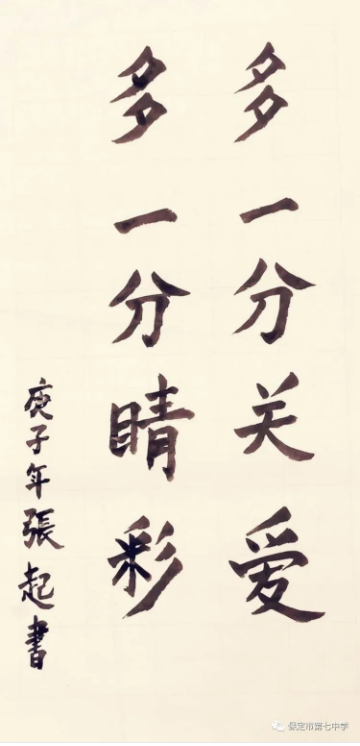 多一分关爱
多一分睛彩
庚子年張起書
保定市第七中学